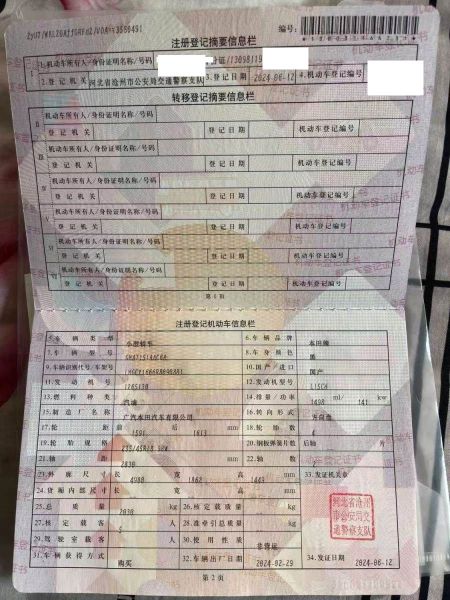 注册登记摘要信息栏
编号:
1.机动车所有人/身份证明名称/号码
2.登记机关 河北省沧州市公安局交通警察支队 3.登记日期 2024-06-12 4.机动车登记编号
转移登记摘要信息栏
II 机动车所有人/身份证明名称/号码
登记机关 登记日期 机动车登记编号
III 机动车所有人/身份证明名称/号码
登记机关 登记日期 机动车登记编号
IV 机动车所有人/身份证明名称/号码
登记机关 登记日期 机动车登记编号
V 机动车所有人/身份证明名称/号码
登记机关 登记日期 机动车登记编号
VI 机动车所有人/身份证明名称/号码
登记机关 登记日期 机动车登记编号
VII 机动车所有人/身份证明名称/号码
登记机关 登记日期 机动车登记编号
第1页
注册登记机动车信息栏
5.车辆类型 小型轿车 6.车辆品牌 本田牌
7.车辆型号 8.车身颜色 黑
9.车辆识别代号/车架号 10.国产/进口 国产
11.发动机号 12.发动机型号 L15CH
13.燃料种类 汽油 14.排量/功率 1498 ml/ 141 kw
15.制造厂名称 广汽本田汽车有限公司 16.转向形式 方向盘
17.轮距 前 1591 后 1613 mm 18.轮胎数 4
19.轮胎规格 20.钢板弹簧片数 后轴 片
21.轴距 2830 mm 22.轴数 2
23.外廓尺寸 长 4980 宽 1862 高 1449 mm 33.发证机关章
24.货厢内部尺寸 长 宽 高 mm
25.总质量 2030 kg 26.核定载质量 kg
27.核定载客 5 人 28.准牵引总质量 kg
29.驾驶室载客 人 30.使用性质 非营运
河北省沧州市公安局交通警察支队
31.车辆获得方式 购买 32.车辆出厂日期 2024-02-29 34.发证日期 2024-06-12
第2页